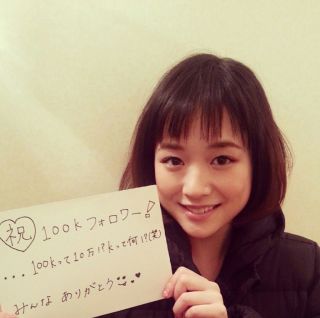 祝 100kフォロワー!
...100kって10万!?kって何!?(笑)
みんな ありがとう